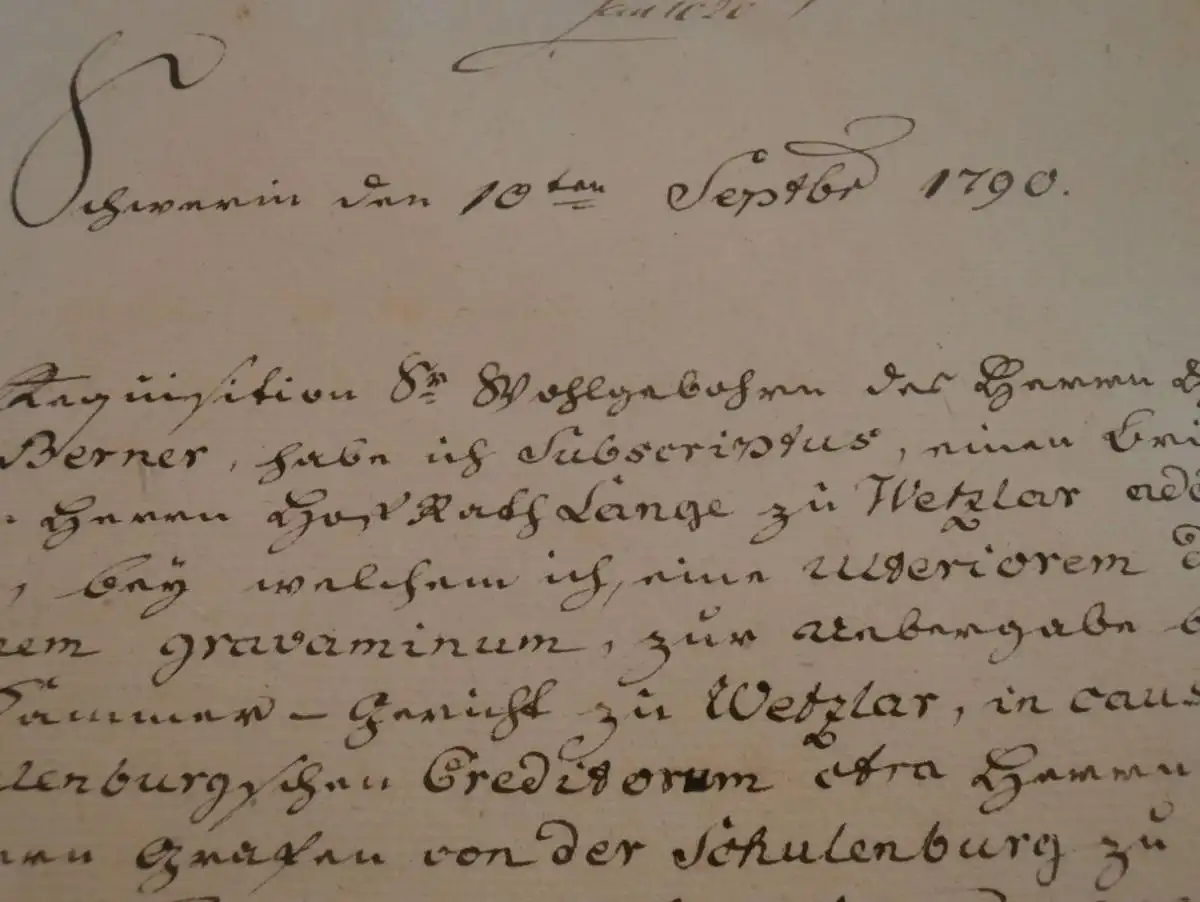 Schwerin den 10ten Septbr 1790.
Requisition Sr Wohlgebohren des Herrn
Berner, habe ich Subscriptus, einen
Herrn HoffRath Lange zu Wetzlar
, bey welchem ich, eine ulteriorem
gravaminum, zur Uebergabe
Cammer-Gericht zu Wetzlar, in
lenburgschen Creditorum ctra Herrn
Grafen von der Schulenburg zu